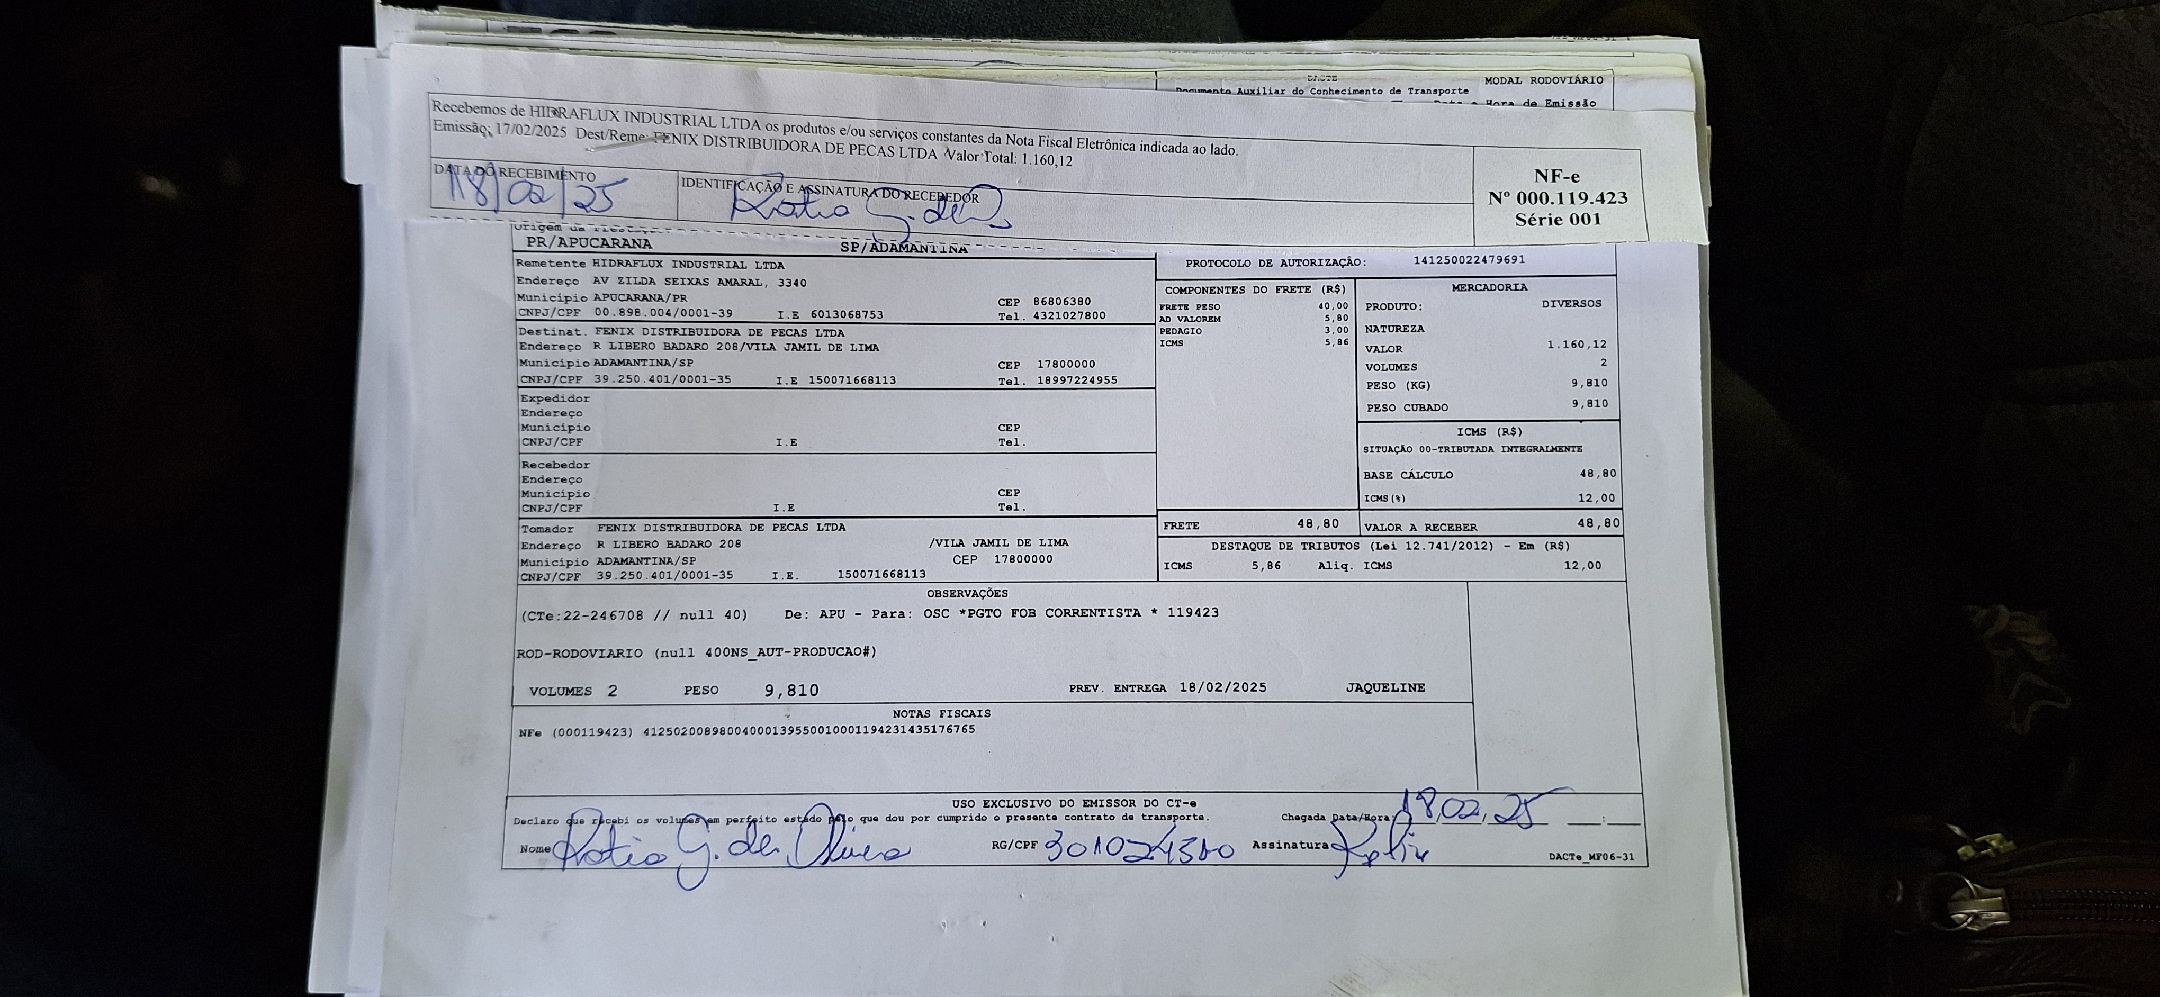 DACTE
MODAL RODOVIÁRIO
Documento Auxiliar do Conhecimento de Transporte
Hora de Emissão
Recebemos de HIDRAFLUX INDUSTRIAL LTDA os produtos e/ou serviços constantes da Nota Fiscal Eletrônica indicada ao lado.
Emissão: 17/02/2025 Dest/Reme: FENIX DISTRIBUIDORA DE PECAS LTDA Valor Total: 1.160,12
DATA DO RECEBIMENTO
18/02/25
IDENTIFICAÇÃO E ASSINATURA DO RECEBEDOR
Katia G. de
NF-e
Nº 000.119.423
Série 001
Origem da
PR/APUCARANA SP/ADAMANTINA
Remetente HIDRAFLUX INDUSTRIAL LTDA
Endereço AV ZILDA SEIXAS AMARAL, 3340
Município APUCARANA/PR CEP 86806380
CNPJ/CPF 00.898.004/0001-39 I.E 6013068753 Tel. 4321027800
Destinat. FENIX DISTRIBUIDORA DE PECAS LTDA
Endereço R LIBERO BADARO 208/VILA JAMIL DE LIMA
Município ADAMANTINA/SP CEP 17800000
CNPJ/CPF 39.250.401/0001-35 I.E 150071668113 Tel. 18997224955
Expedidor
Endereço
Município CEP
CNPJ/CPF I.E Tel.
Recebedor
Endereço
Município CEP
CNPJ/CPF I.E Tel.
Tomador FENIX DISTRIBUIDORA DE PECAS LTDA
Endereço R LIBERO BADARO 208 /VILA JAMIL DE LIMA
Município ADAMANTINA/SP CEP 17800000
CNPJ/CPF 39.250.401/0001-35 I.E. 150071668113
PROTOCOLO DE AUTORIZAÇÃO: 141250022479691
COMPONENTES DO FRETE (R$)
FRETE PESO 40,00
AD VALOREM 5,80
PEDAGIO 3,00
ICMS 5,86
MERCADORIA
PRODUTO: DIVERSOS
NATUREZA
VALOR 1.160,12
VOLUMES 2
PESO (KG) 9,810
PESO CUBADO 9,810
ICMS (R$)
SITUAÇÃO 00-TRIBUTADA INTEGRALMENTE
BASE CÁLCULO 48,80
ICMS(%) 12,00
FRETE 48,80 VALOR A RECEBER 48,80
DESTAQUE DE TRIBUTOS (Lei 12.741/2012) - Em (R$)
ICMS 5,86 Aliq. ICMS 12,00
OBSERVAÇÕES
(CTe:22-246708 // null 40) De: APU - Para: OSC *PGTO FOB CORRENTISTA * 119423
ROD-RODOVIARIO (null 400NS_AUT-PRODUCAO#)
VOLUMES 2 PESO 9,810 PREV. ENTREGA 18/02/2025 JAQUELINE
NOTAS FISCAIS
NFe (000119423) 41250200898004000139550010001194231435176765
USO EXCLUSIVO DO EMISSOR DO CT-e
Declaro que recebi os volumes em perfeito estado pelo que dou por cumprido o presente contrato de transporte. Chegada Data/Hora: 18,02,25
Nome Katia G. de Oliveira RG/CPF Assinatura
DACTe_MF06-31